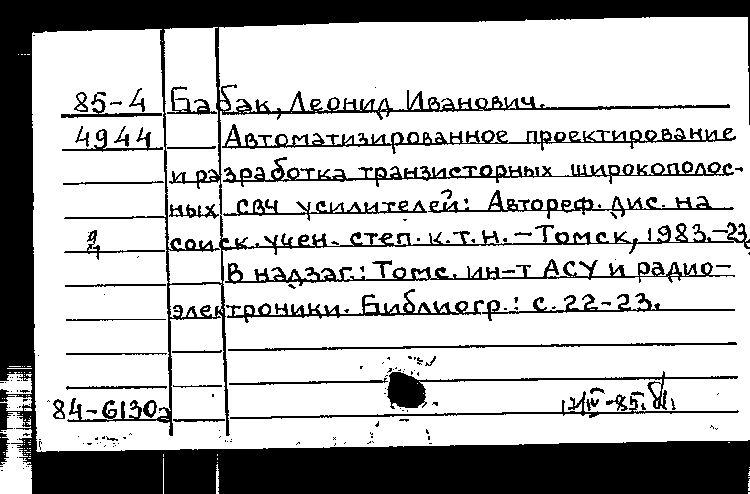 85-4 Бабак, Леонид Иванович.
4944 Автоматизированное проектирование
и разработка транзисторных широкополос-
ных СВЧ усилителей: Автореф. дис. на
соиск. учен. степ. к.т.н. – Томск, 1983.-23
В надзаг.: Томс. ин-т АСУ и радио-
электроники. Библиогр.: с. 22-23.
84-6130а 12/IV-85.